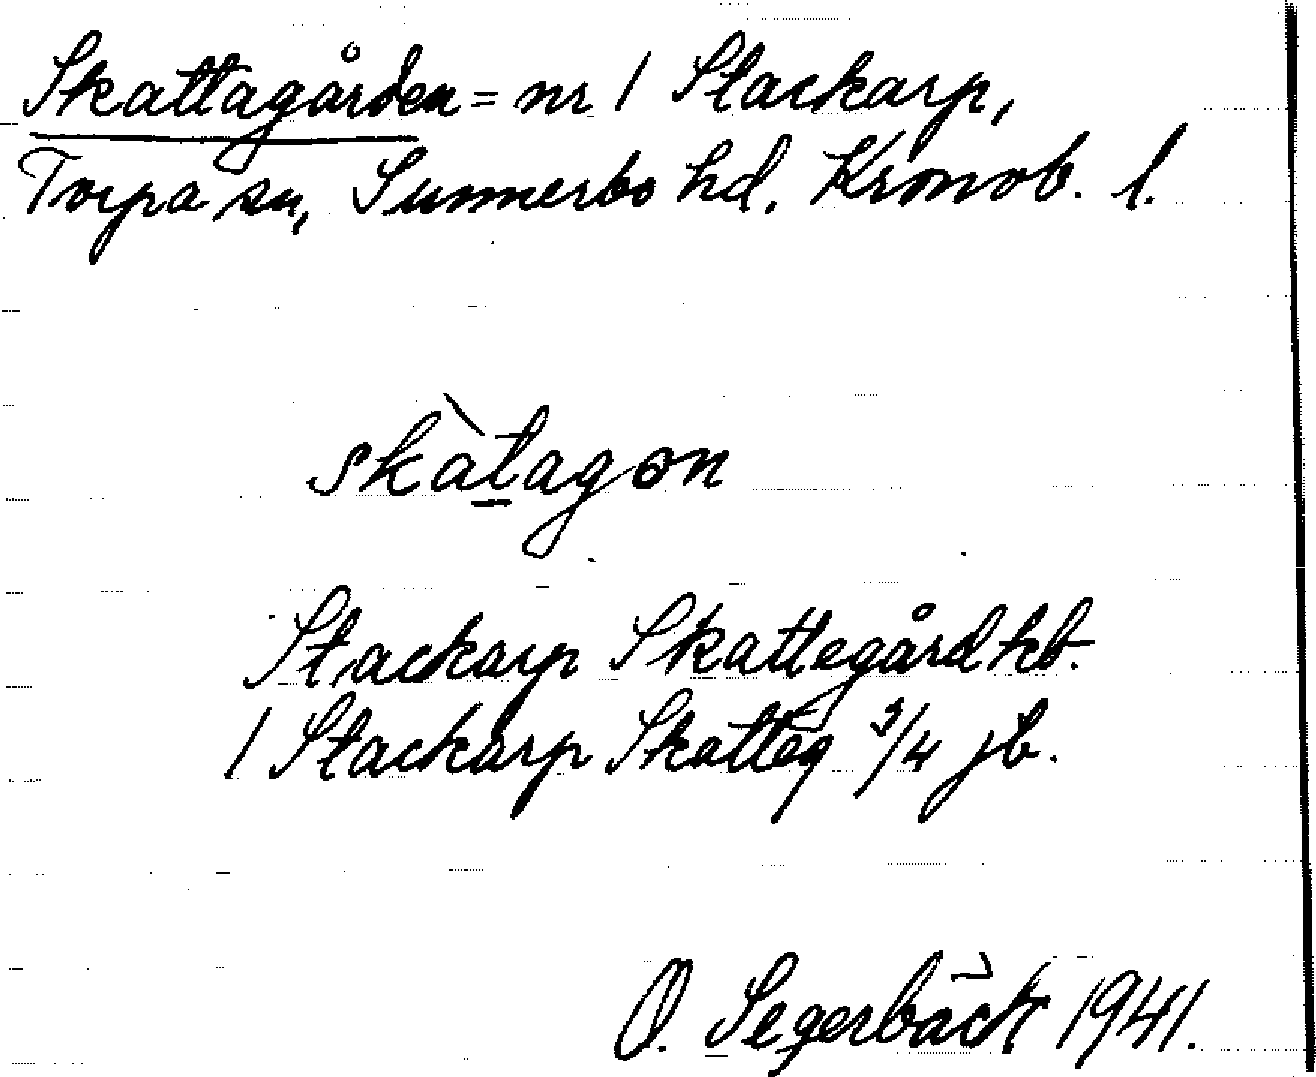 Skattagården = nr 1 Stackarp,
Torpa sn, Sunnerbo hd. Kronob. l.
skàtagon
Stackarp Skattegård hb.
1 Stackarp Skatteg 3/4 jb.
O. Segerbäck 1941.